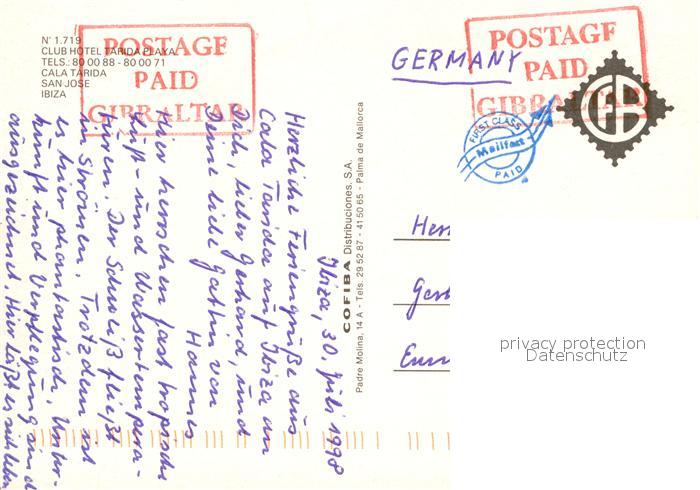 N° 1.719
CLUB HOTEL TARIDA PLAYA
TELS.: 80 00 88 - 80 00 71
CALA TARIDA
SAN JOSE
IBIZA
POSTAGE
PAID
GIBRALTAR
GERMANY
POSTAGE
PAID
GIBRALTAR
FIRST CLASS
Mailfast
PAID
Ibiza, 30. Juli 1998
Herzliche Feriengrüße aus
Cala Tarida auf Ibiza an
Dich, lieber Gerhard, und
Deine liebe Gattin von
Hannes
Hier herrschen fast tropische
Luft- und Wassertempera-
turen. Der Schweiß fließt
in Strömen. Trotzdem ist
es hier phantastisch. Unter-
kunft und Verpflegung sind
ausgezeichnet. Hier läßt es sich leben
COFIBA Distribuciones, S.A.
Padre Molina, 14 A - Tels: 29 52 87 - 41 50 65 - Palma de Mallorca
privacy protection
Datenschutz